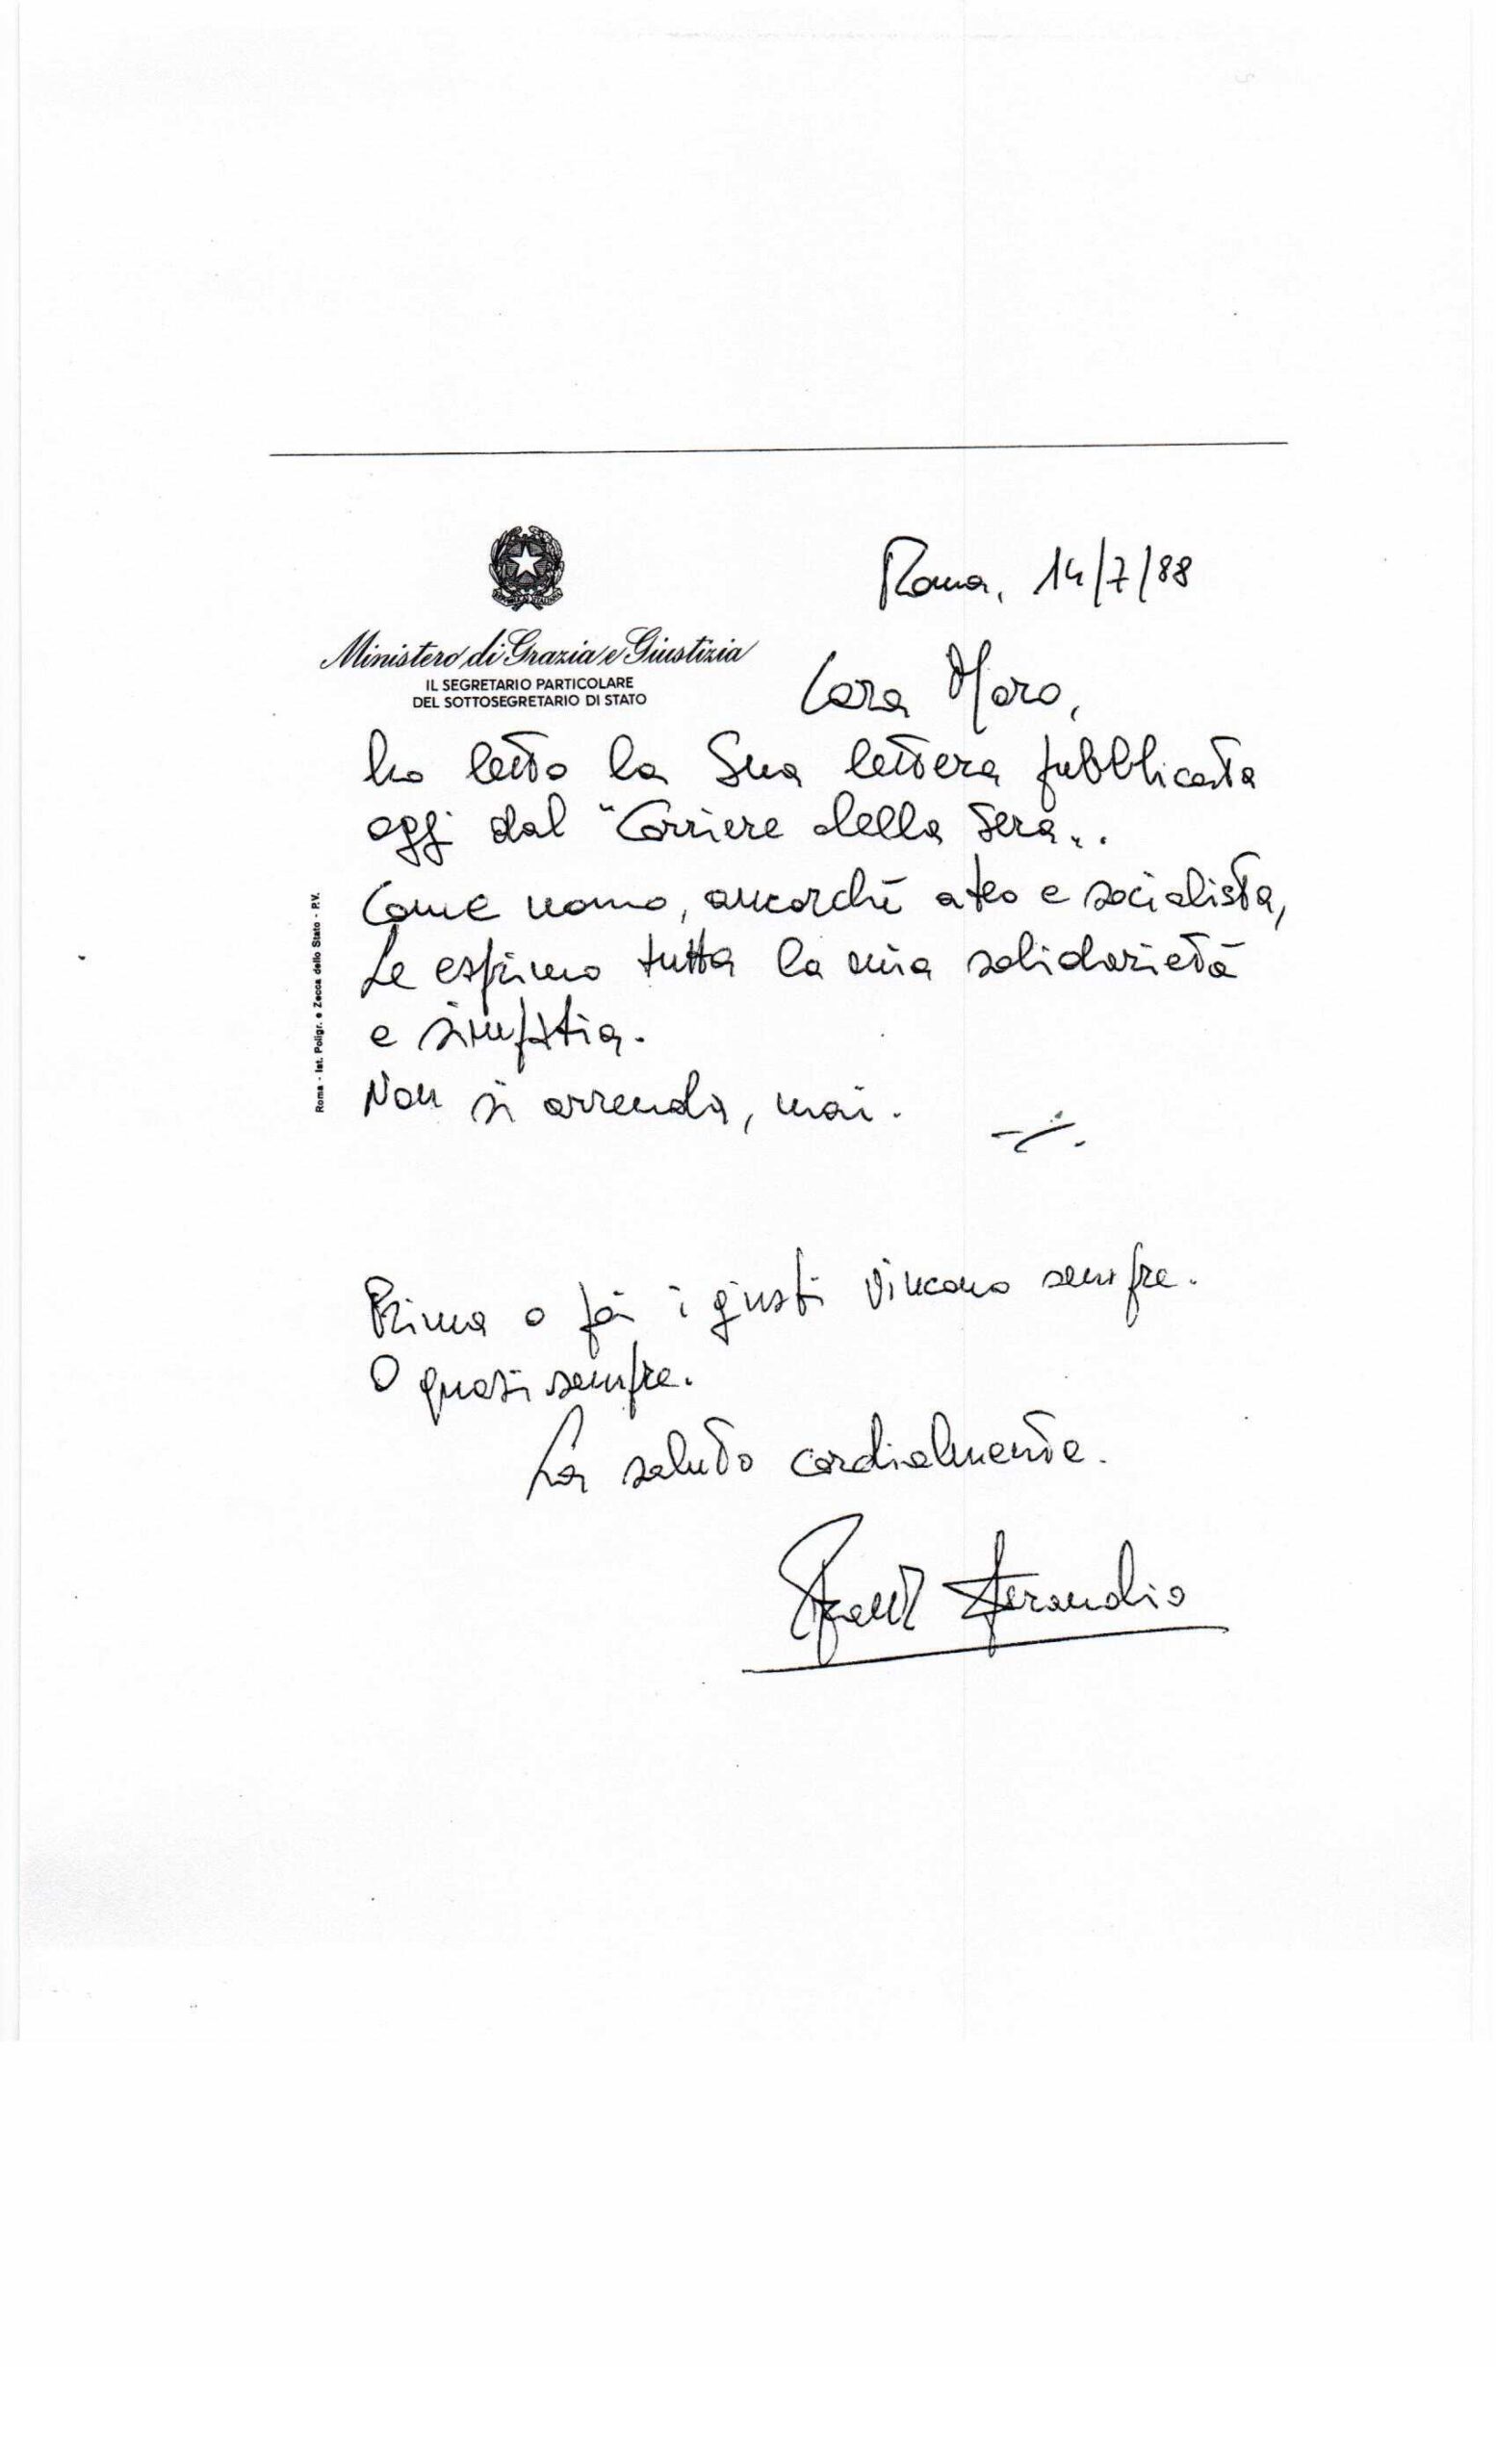 Roma, 14/7/88
Ministero di Grazia e Giustizia
IL SEGRETARIO PARTICOLARE
DEL SOTTOSEGRETARIO DI STATO
Cara Moro,
ho letto la Sua lettera pubblicata
oggi dal "Corriere della Sera".
Come uomo, ancorché ateo e socialista,
Le esprimo tutta la mia solidarietà
e simpatia.
Non si arrenda, mai.
Roma - Ist. Poligr. e Zecca dello Stato - P.V.
Prima o poi i giusti vincono sempre.
O quasi sempre.
La saluto cordialmente.